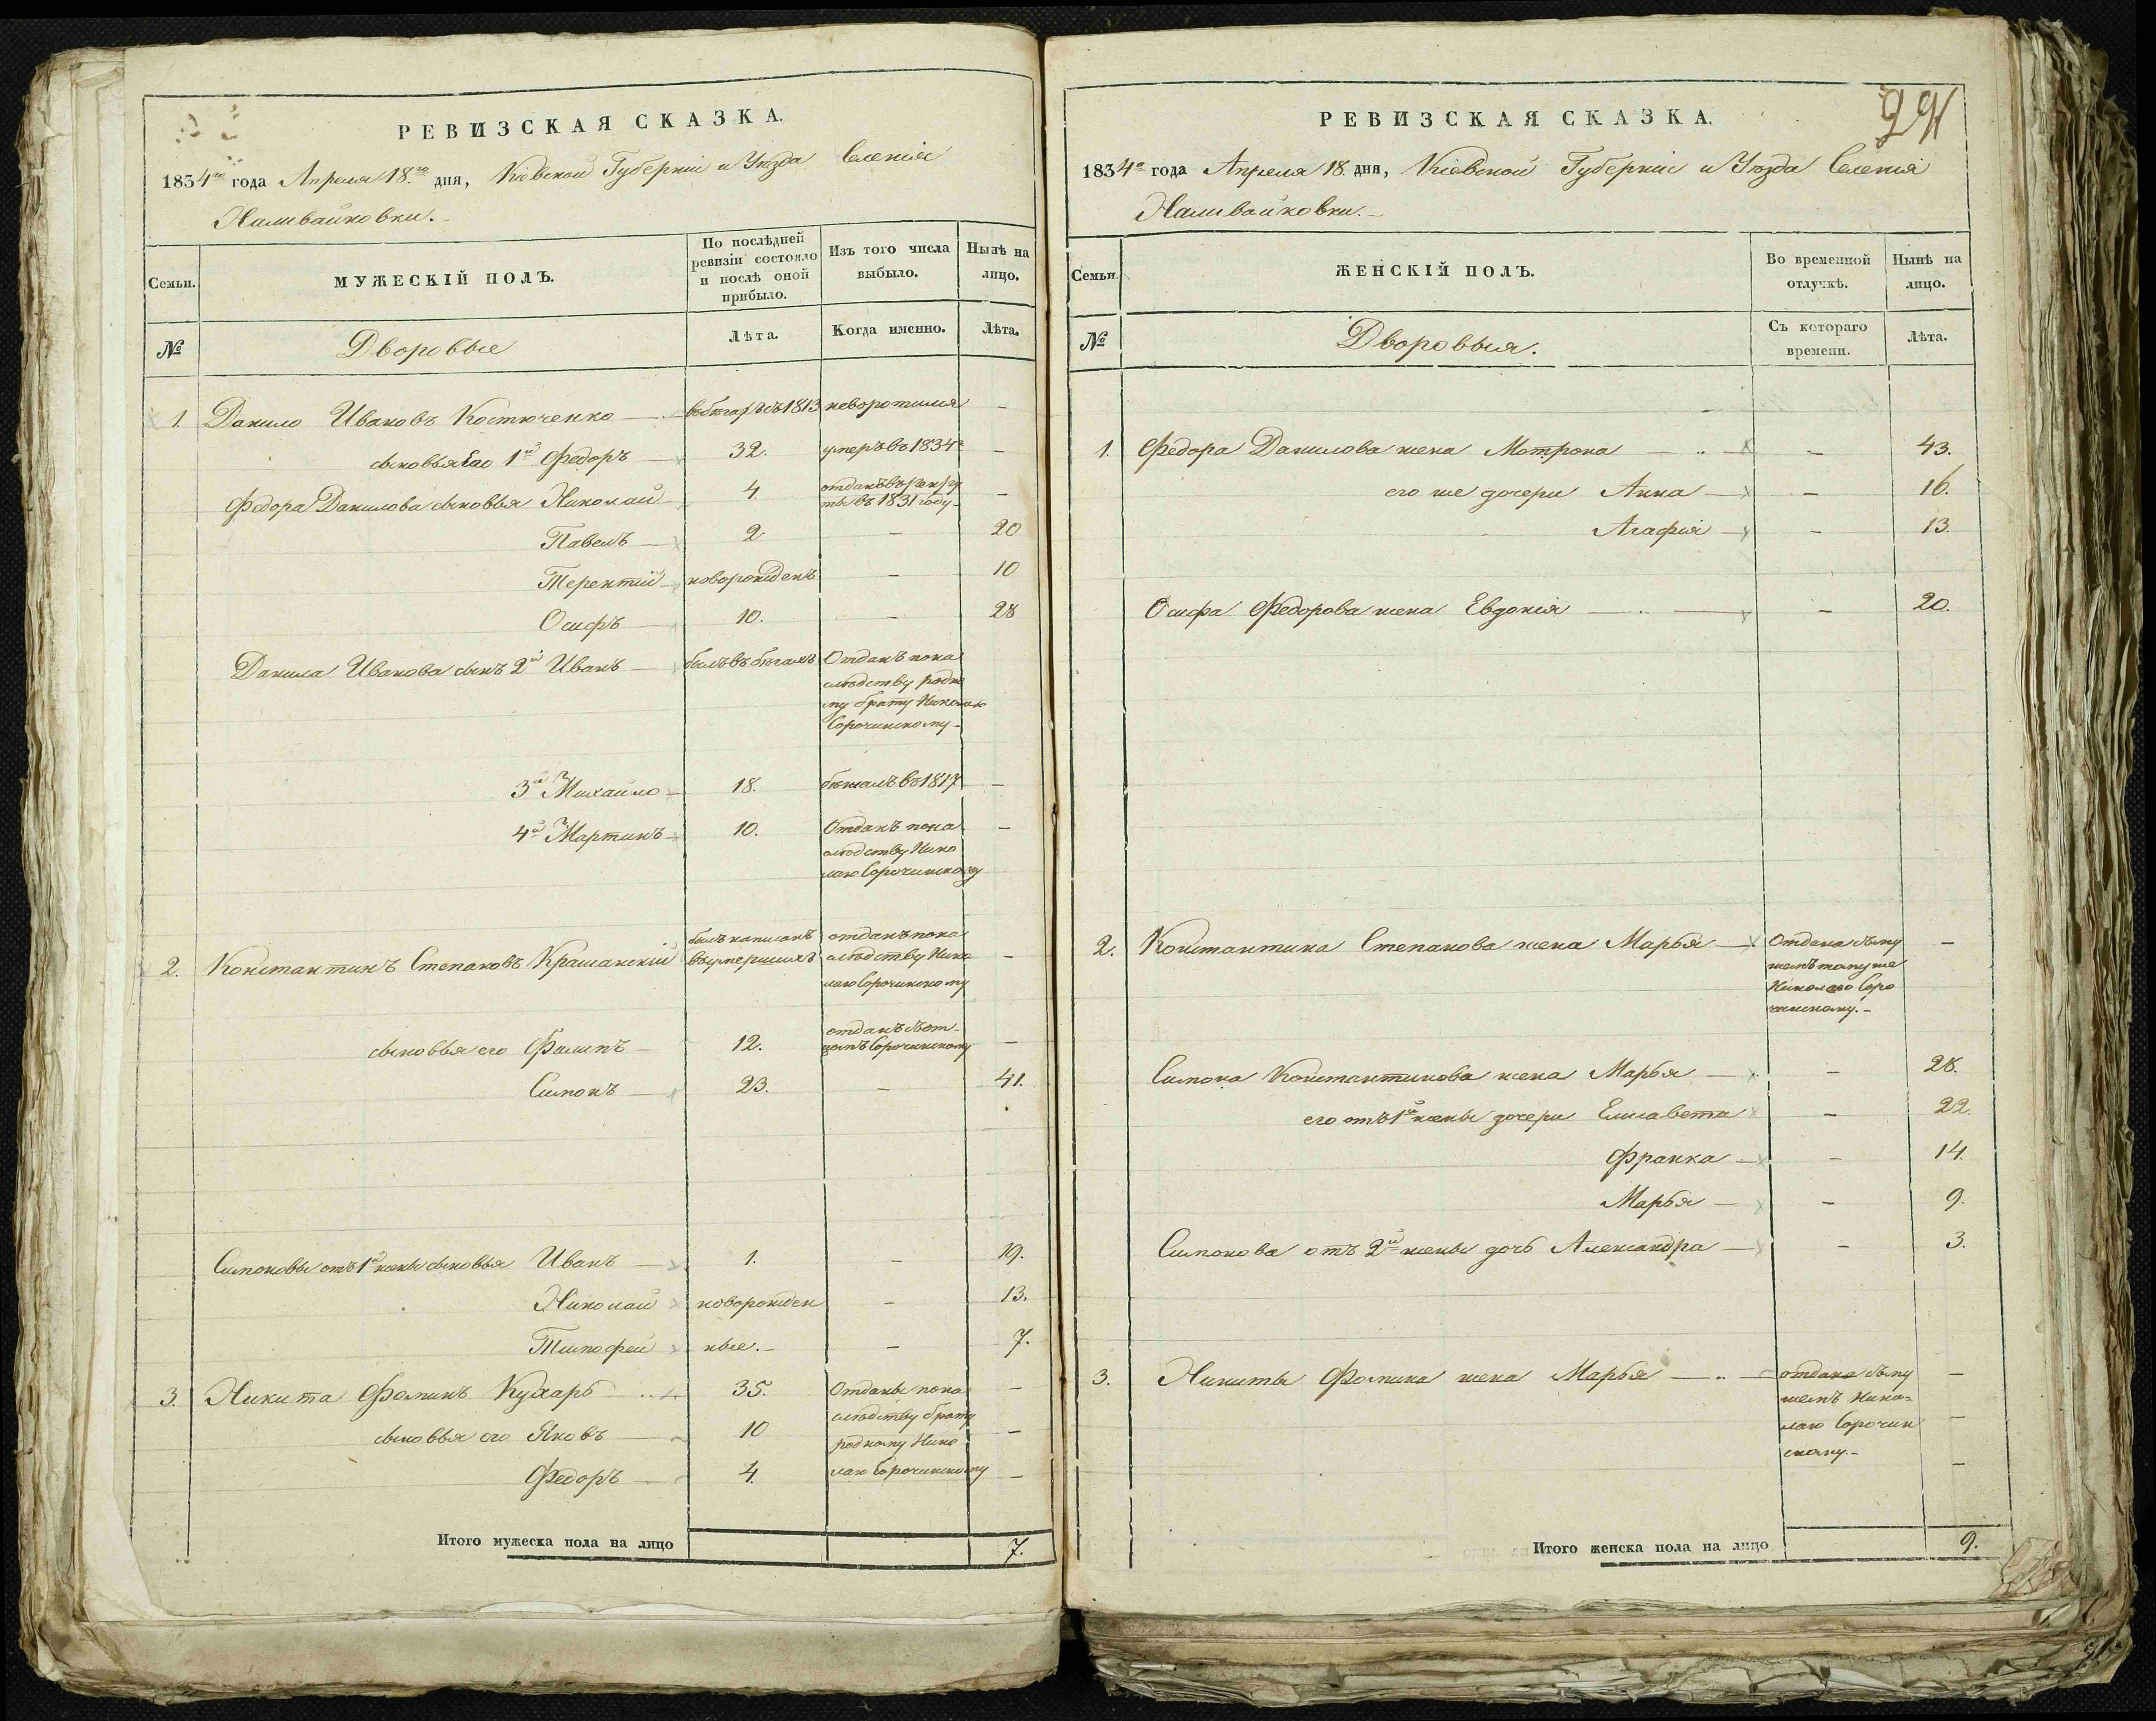 РЕВИЗСКАЯ СКАЗКА.
1834го года Апреля 18.го дня, Кіевской Губерніи и Уѣзда Селенія
Наливайковки.
Семьи.
МУЖЕСКІЙ ПОЛЪ.
По послѣдней ревизіи состояло и послѣ оной прибыло.
Изъ того числа выбыло.
Нынѣ на лицо.
№
Дворовые
Лѣта.
Когда именно.
Лѣта.
1. Данило Ивановъ Костюченко — съ 1813 неворотился —
сыновья Его 1й Федоръ — 32. умеръ въ 1834г —
Федора Данилова сыновья Николай 4. отданъ въ рекру
ты въ 1831 году —
Павелъ — 2 — 20
Терентій новорожденъ — 10
Осифъ — 10. — 28
Данила Иванова сынъ 2й Иванъ — былъ въ бѣгахъ Отданъ пона
слѣдству родно
му брату Николаю
Сорочинскому —
3й Михайло — 18. бѣжалъ въ 1817 —
4й Мартинъ — 10. Отданъ пона —
слѣдству Нико
лаю Сорочинскому
2. Константинъ Степановъ Крашанскій былъ написанъ отданъ пона
въ умершихъ слѣдству Нико —
лаю Сорочинскому
сыновья его Филипъ — 12. отданъ сът-
цомъ Сорочинскому —
Симонъ — 23. — 41.
Симоновы отъ 1й жены сыновья Иванъ — 1. — 19.
Николай новорожден — 13.
Тимофей ные. — — 7.
3. Никита Фоминъ Кухарь 35. Отданы пона —
слѣдству брату
сыновья его Яковъ — 10 родному Нико —
Федоръ — 4. лаю Сорочинскому —
Итого мужеска пола на лицо 7.
РЕВИЗСКАЯ СКАЗКА.
1834го года Апреля 18. дня, Кіевской Губерніи и Уѣзда Селенія
Наливайковки. —
Семьи.
ЖЕНСКІЙ ПОЛЪ.
Во временной отлучкѣ.
Нынѣ на лицо.
№
Дворовыя.
Съ котораго времени.
Лѣта.
1. Федора Данилова жена Мотрона — — 43.
его же дочери Анна — — 16.
Агафія — — 13.
Осифа Федорова жена Евдокія — — 20.
2. Константина Степанова жена Марья — Отдана съму —
жемъ тому же
Николаю Соро
чинскому. —
Симона Константинова жена Марья — — 28.
его отъ 1й жены дочери Елисавета — 22.
Франка — — 14.
Марья — — 9.
Симонова отъ 2й жены дочь Александра — — 3.
3. Никиты Фомина жена Марья — отдана съму —
жемъ Нико-
лаю Сорочин —
скому. —
—
Итого женска пола на лицо 9.